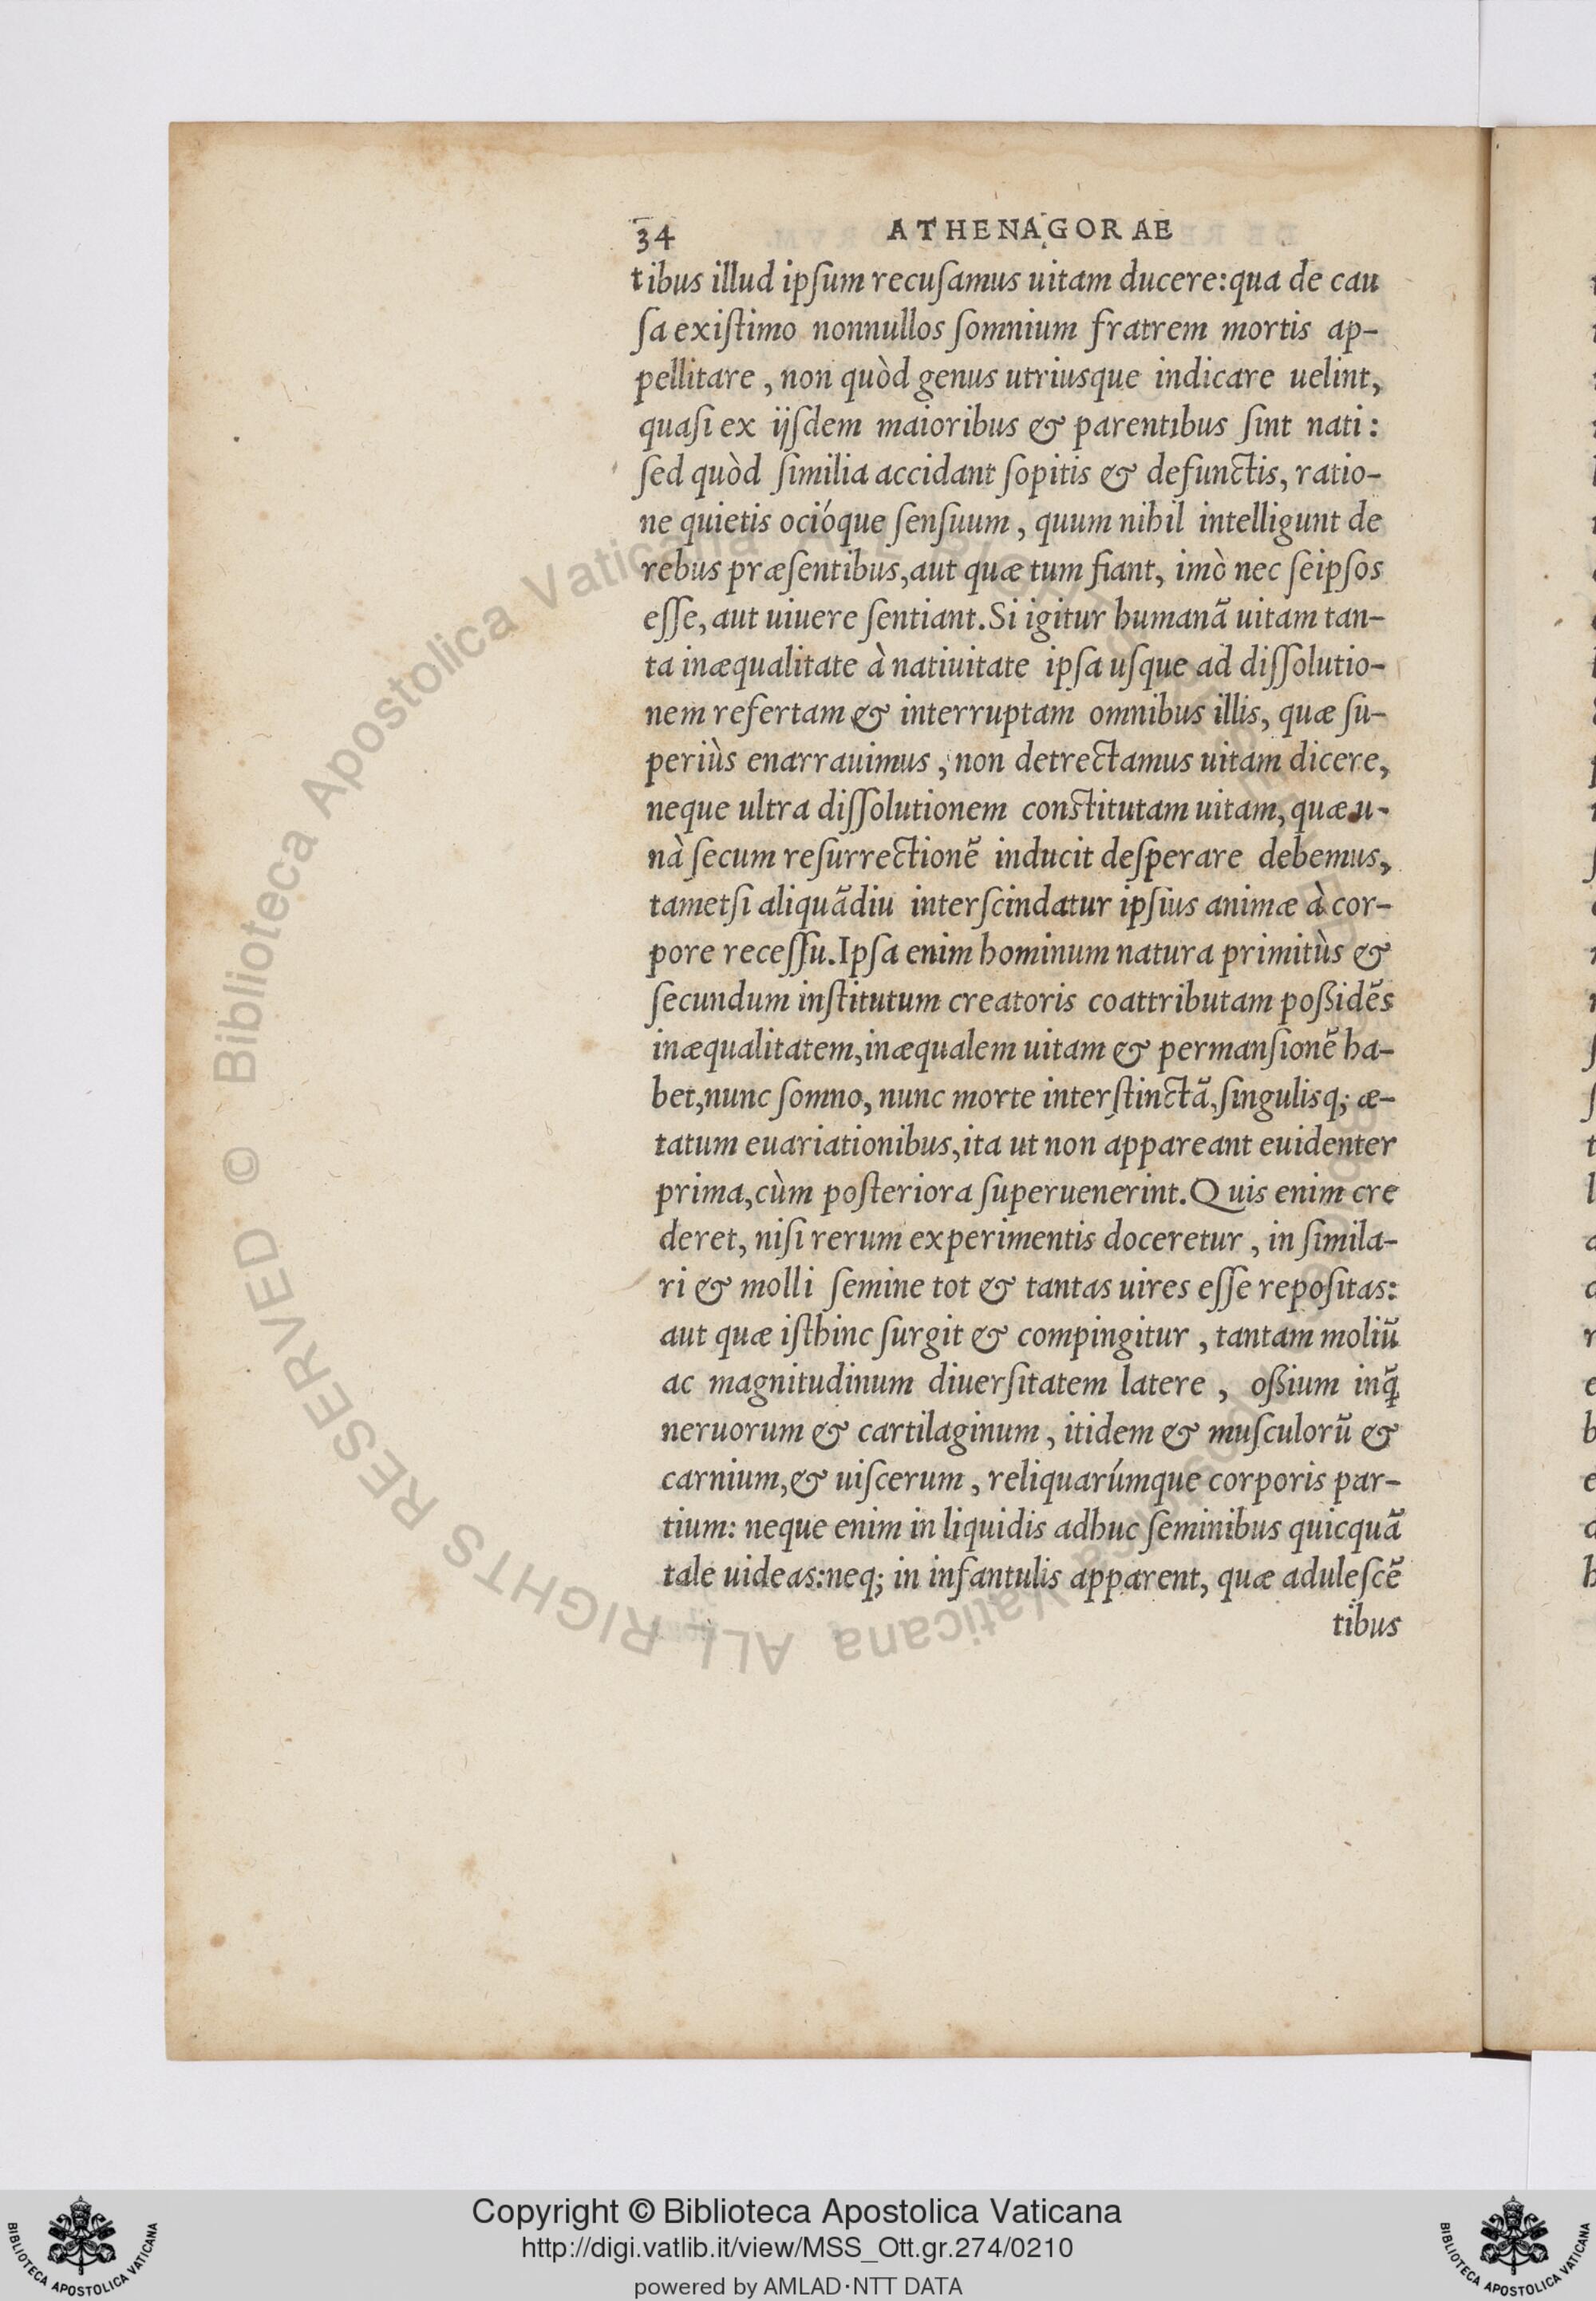 34 ATHENAGORAE
tibus illud ipſum recuſamus uitam ducere:qua de cau
ſa exiſtimo nonnullos ſomnium fratrem mortis ap-
pellitare, non quòd genus utriusque indicare uelint,
quaſi ex ijſdem maioribus & parentibus ſint nati:
ſed quòd ſimilia accidant ſopitis & defunctis, ratio-
ne quietis ocióque ſenſuum, quum nihil intelligunt de
rebus præſentibus, aut quæ tum fiant, imò nec ſeipſos
eſſe, aut uiuere ſentiant. Si igitur humanã uitam tan-
ta inæqualitate à natiuitate ipſa uſque ad diſſolutio-
nem refertam & interruptam omnibus illis, quæ ſu-
periùs enarrauimus, non detrectamus uitam dicere,
neque ultra diſſolutionem conſtitutam uitam, quæ u-
nà ſecum reſurrectionẽ inducit deſperare debemus,
tametſi aliquãdiu interſcindatur ipſius animæ à cor-
pore receſſu. Ipſa enim hominum natura primitùs &
ſecundum inſtitutum creatoris coattributam poßidẽs
inæqualitatem, inæqualem uitam & permanſionẽ ha-
bet, nunc ſomno, nunc morte interſtinctã, ſingulisq; æ-
tatum euariationibus, ita ut non appareant euidenter
prima, cùm poſteriora ſuperuenerint. Quis enim cre
deret, niſi rerum experimentis doceretur, in ſimila-
ri & molli ſemine tot & tantas uires eſſe repoſitas:
aut quæ iſthinc ſurgit & compingitur, tantam moliũ
ac magnitudinum diuerſitatem latere, oßium inq̃
neruorum & cartilaginum, itidem & muſculorũ &
carnium, & uiſcerum, reliquarúmque corporis par-
tium: neque enim in liquidis adhuc ſeminibus quicquã
tale uideas: neq; in infantulis apparent, quæ aduleſcẽ
tibus
© Biblioteca Apostolica Vaticana ALL RIGHTS RESERVED
Copyright © Biblioteca Apostolica Vaticana
http://digi.vatlib.it/view/MSS_Ott.gr.274/0210
powered by AMLAD·NTT DATA
BIBLIOTECA APOSTOLICA VATICANA
BIBLIOTECA APOSTOLICA VATICANA